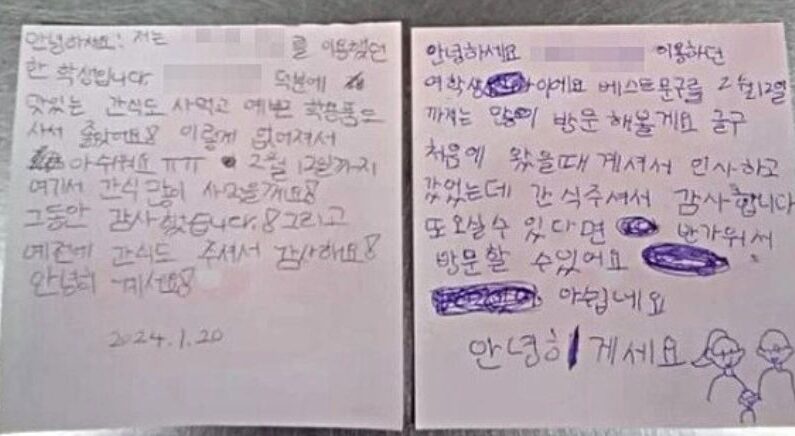 안녕하세요! 저는 를 이용했던
한 학생입니다. 덕분에
맛있는 간식도 사먹고 예쁜 학용품도
사서 좋았어요! 이렇게 없어져서
아쉬워요 ㅠㅠ 2월 12일까지
여기서 간식 많이 사먹을게요!
그동안 감사했습니다! 그리고
예전에 간식도 주셔서 감사해요!
안녕히 계세요!
2024.1.20
안녕하세요 이용하던
여학생 이에요 베스트문구를 2월12일
까지는 많이 방문해볼게요
처음에 왔을때 계셔서 인사하고
갔었는데 간식주셔서 감사합니다
또 오실 수 있다면 반가워서
방문할 수있어요
아쉽네요
안녕히 게세요